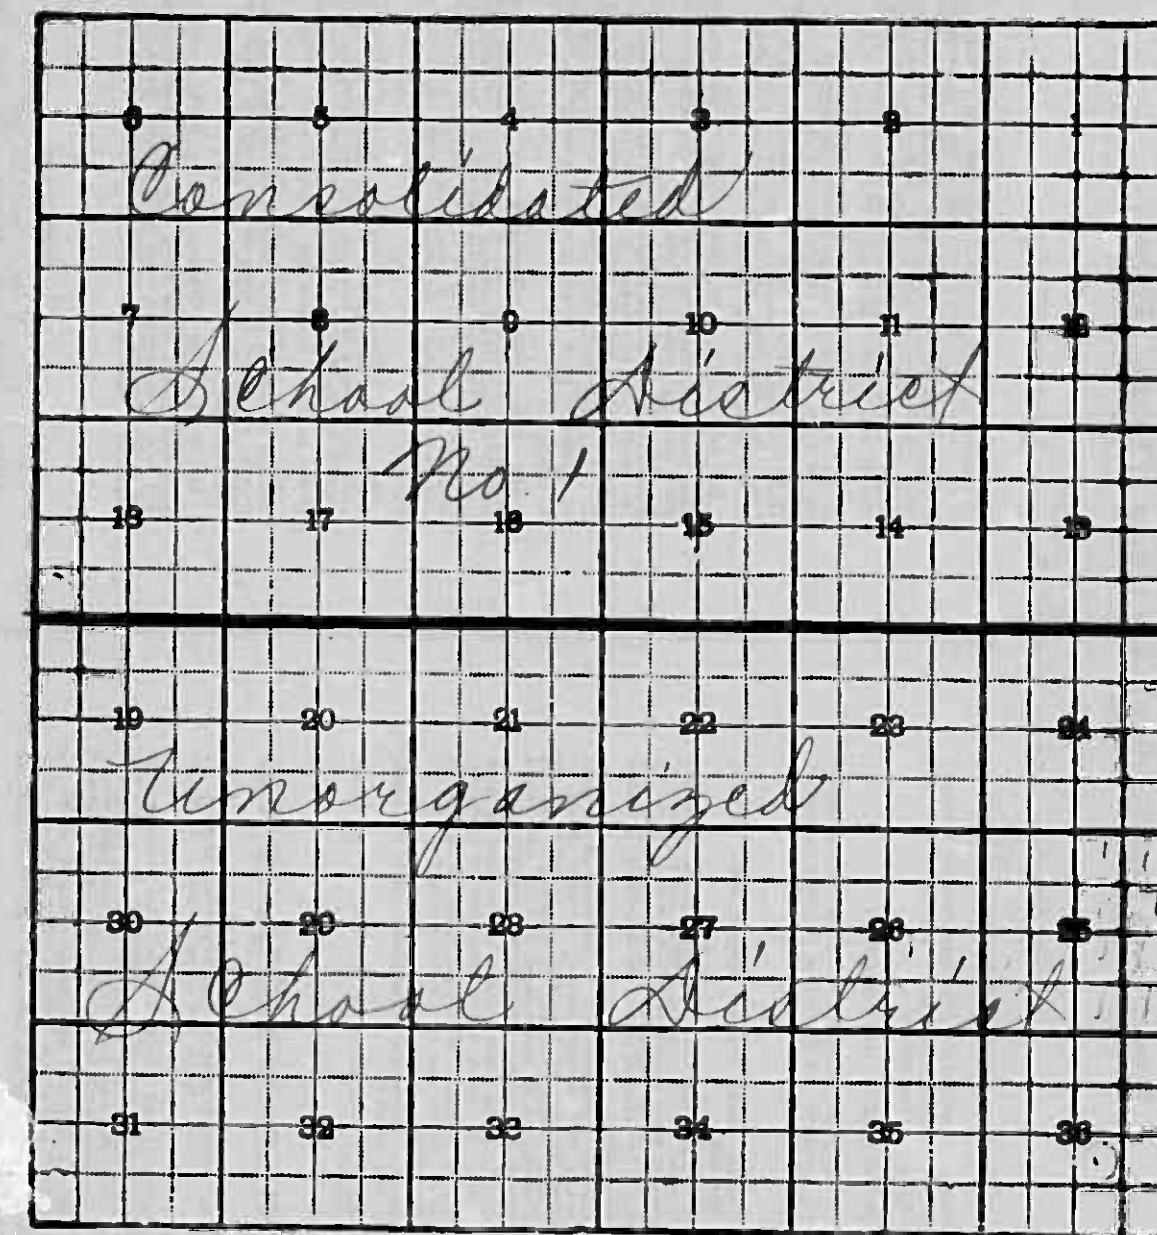 6 5 4 3 2 1
Consolidated
7 8 9 10 11 12
School District
No. 1
18 17 16 15 14 13
19 20 21 22 23 24
Unorganized
30 29 28 27 26 25
School District
31 32 33 34 35 36